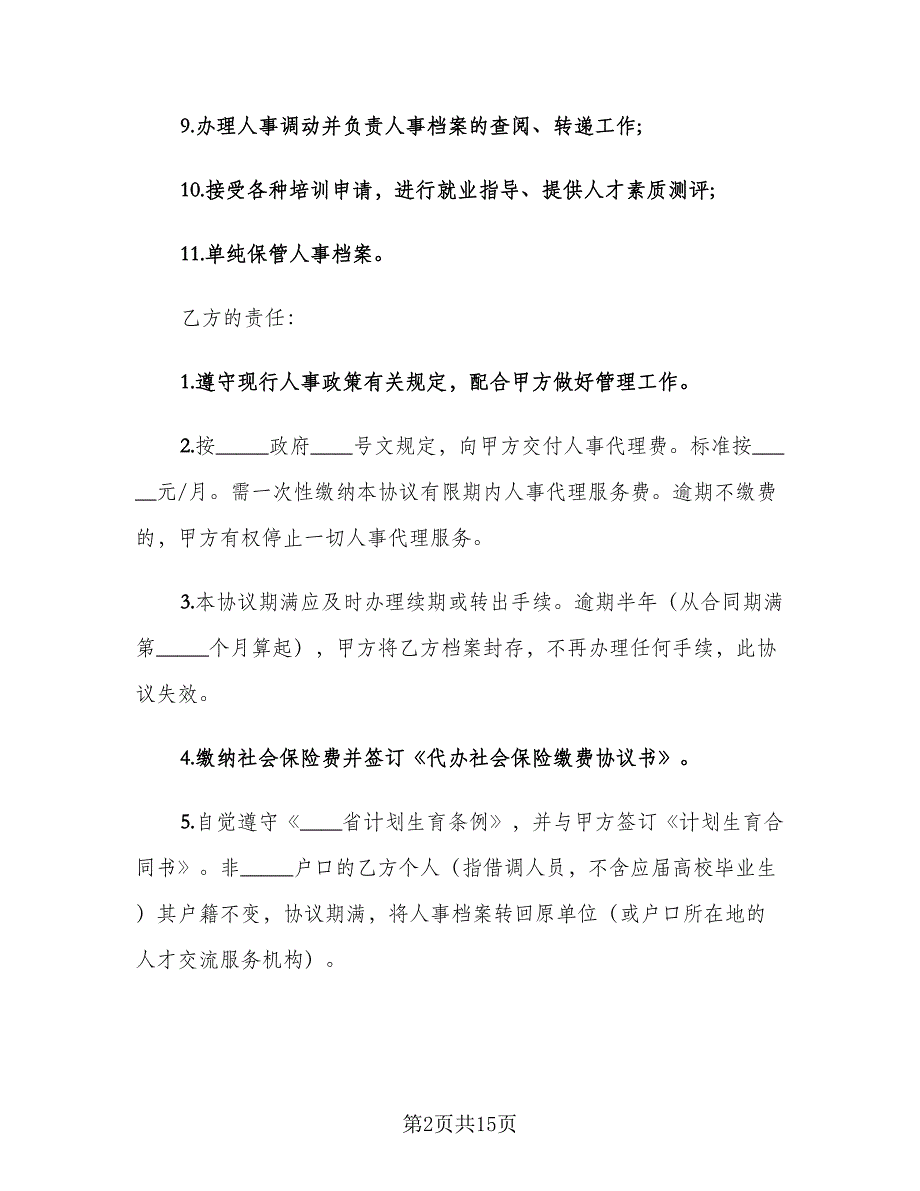 9.办理人事调动并负责人事档案的查阅、转递工作;
10.接受各种培训申请，进行就业指导、提供人才素质测评;
11.单纯保管人事档案。
乙方的责任：
1.遵守现行人事政策有关规定，配合甲方做好管理工作。
2.按_____政府____号文规定，向甲方交付人事代理费。标准按___
__元/月。需一次性缴纳本协议有限期内人事代理服务费。逾期不缴费
的，甲方有权停止一切人事代理服务。
3.本协议期满应及时办理续期或转出手续。逾期半年（从合同期满
第_____个月算起），甲方将乙方档案封存，不再办理任何手续，此协
议失效。
4.缴纳社会保险费并签订《代办社会保险缴费协议书》。
5.自觉遵守《____省计划生育条例》，并与甲方签订《计划生育合
同书》。非_____户口的乙方个人（指借调人员，不含应届高校毕业生
）其户籍不变，协议期满，将人事档案转回原单位（或户口所在地的
人才交流服务机构）。
第2页共15页